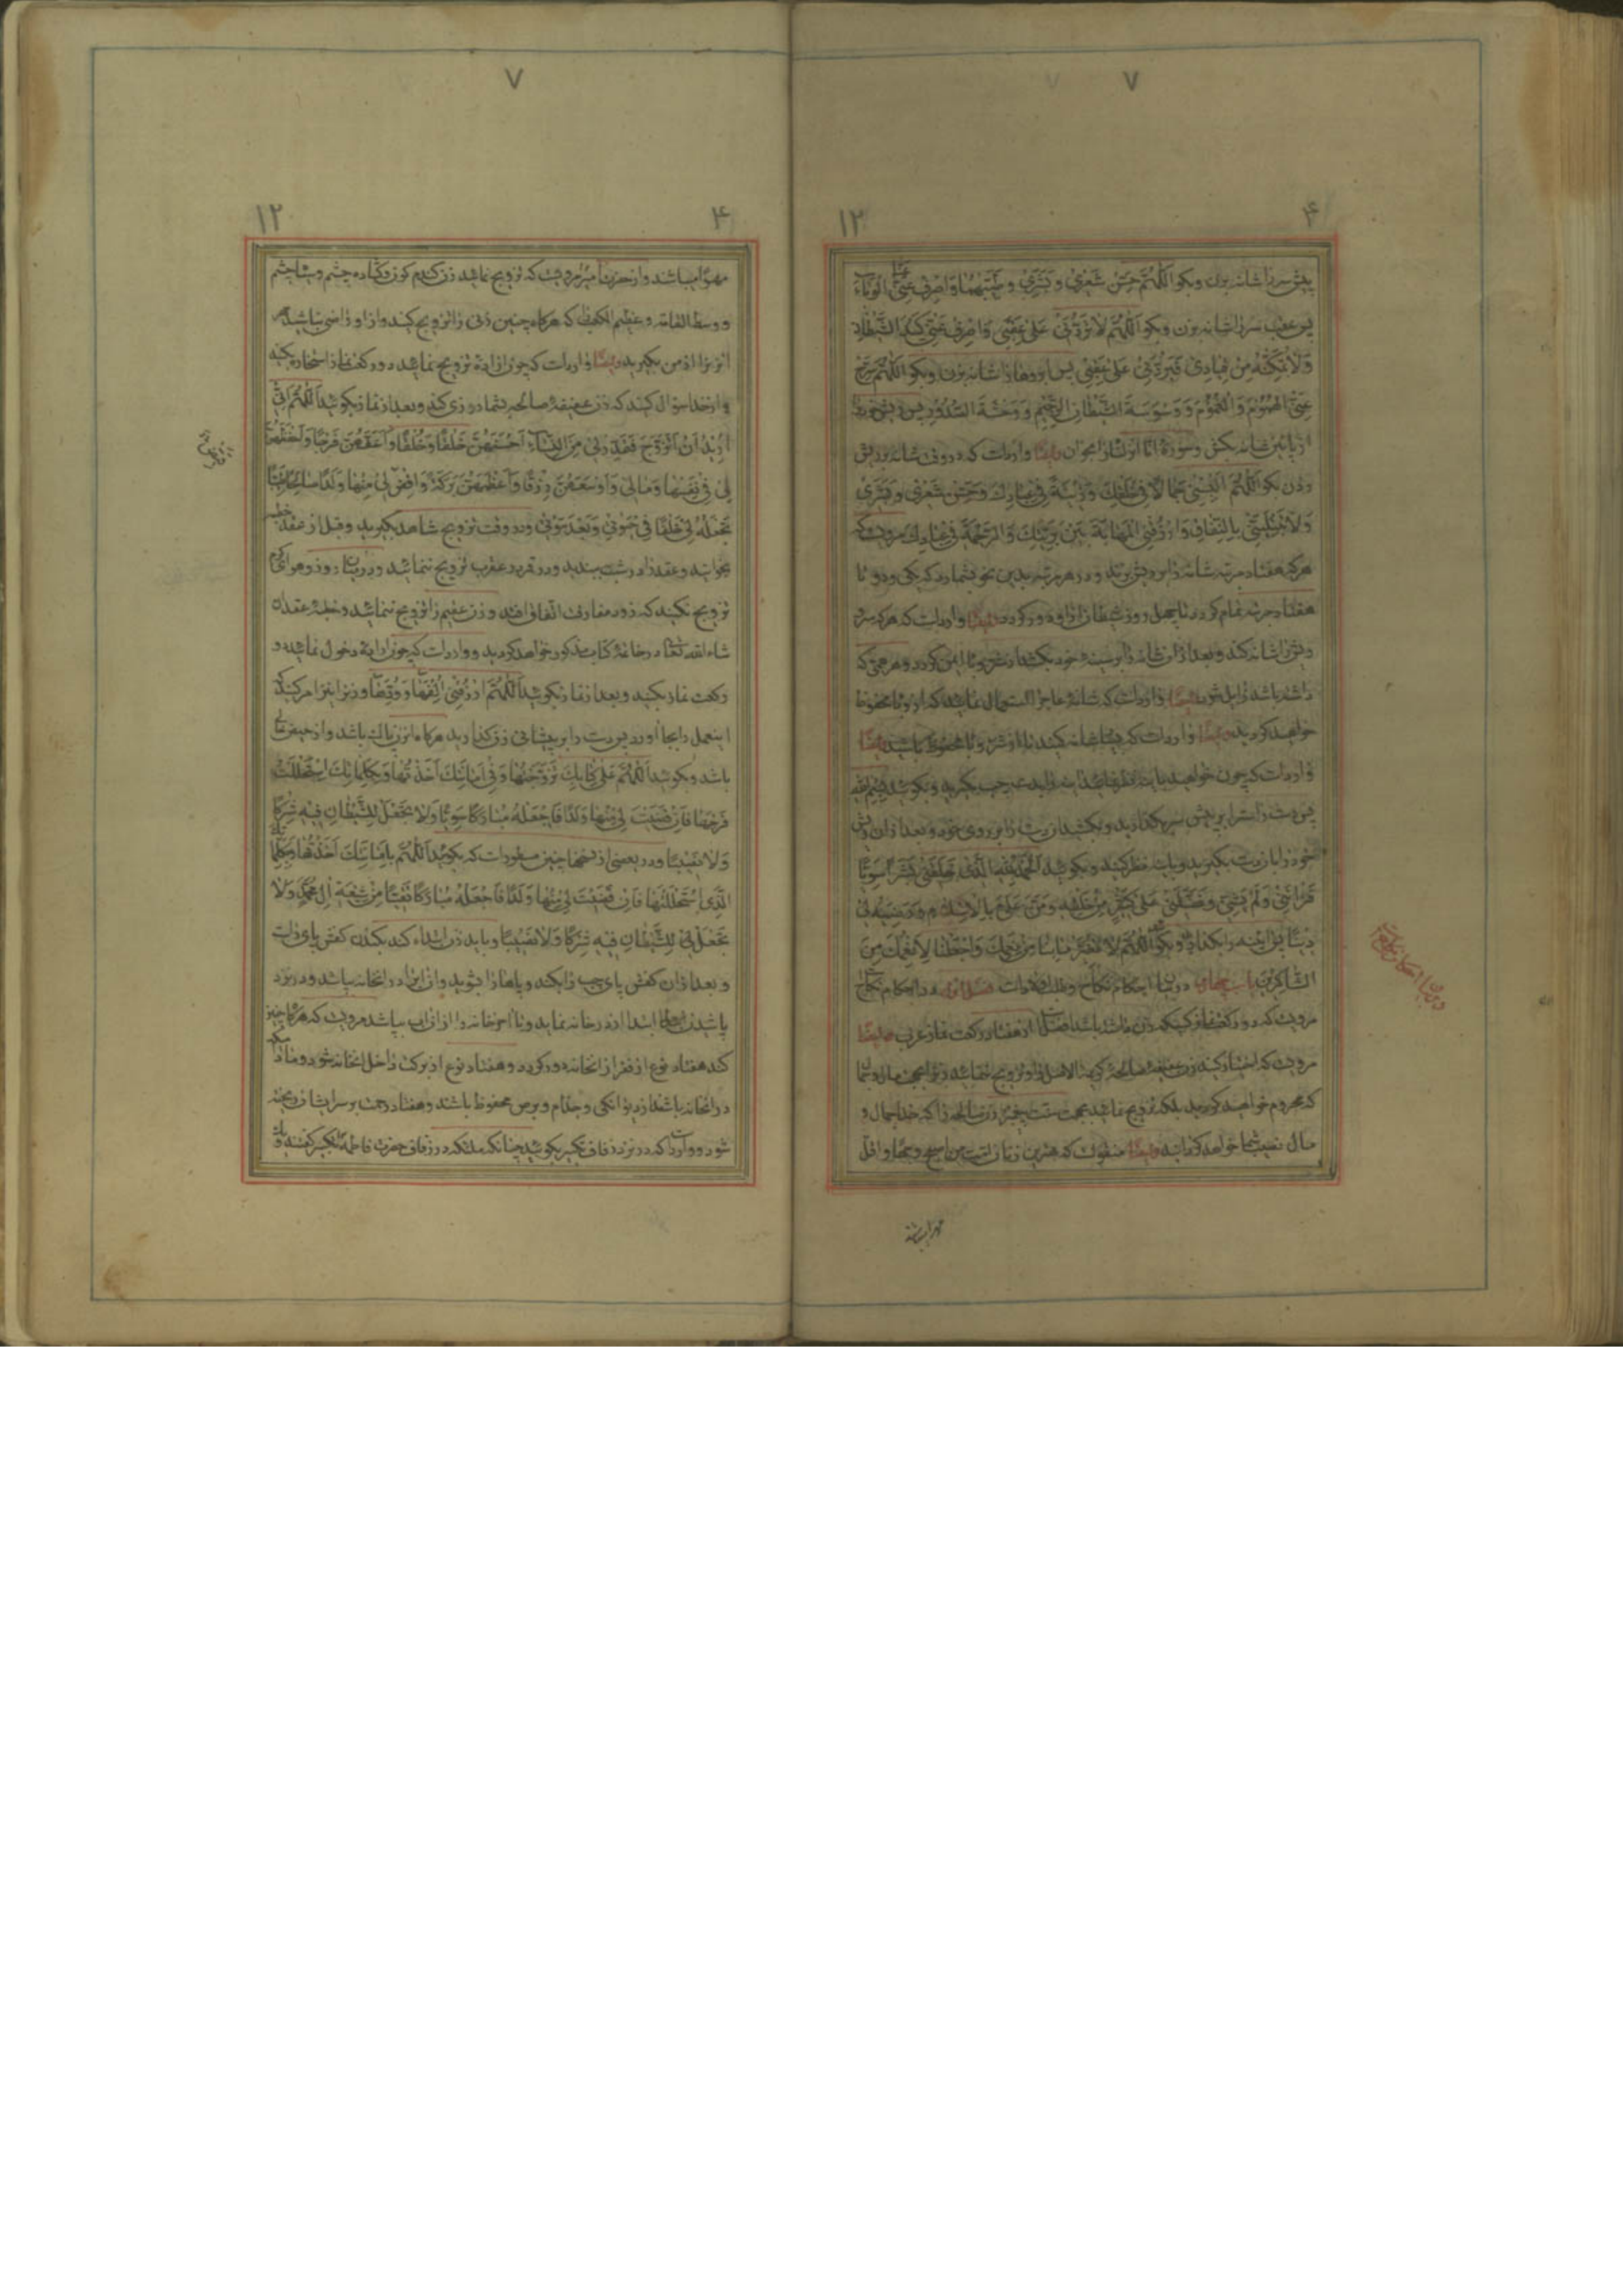 ۷
۴
۱۲
پیش سر را شانه بزن و بگو اَللّٰهُمَّ حَسِّنْ شَعْری وَ بَشَری وَ طَیِّبْهُما وَاصْرِفْ عَنِّی الْوَباءَ
پس عقب سر را شانه بزن و بگو اَللّٰهُمَّ لا تَرُدَّنی عَلیٰ عَقِبی وَاصْرِفْ عَنِّی کَیْدَ الشَّیْطانِ
وَلا تُمَکِّنْهُ مِنْ قِیادی فَیَرُدَّنی عَلیٰ عَقِبی پس ابروها را شانه بزن و بگو اللّٰهُمَّ سَرِّحْ
عَنِّی الْهُمُومَ وَالْغُمُومَ وَ وَسْوَسَةَ الشَّیْطانِ الرَّجیمِ وَ وَحْشَةَ الصُّدُورِ پس ریش خود را
از پائین شانه بکش و سورهٔ انا انزلناه را بخوان وایضا وارد است که در وقت شانه بریش
زدن بگو اَللّٰهُمَّ اکْسُنی جَمالًا فی خَلْقِکَ وَ زینَةً فی عِبادِکَ وَ حَسِّنْ شَعْری وَ بَشَری
وَلا تَبْتَلِیَنّی بِالنِّفاقِ وَارْزُقْنِی الْمَهابَةَ بَیْنَ بَرِیَّتِکَ وَالرَّحْمَةَ فی عِبادِکَ مرویست که
هرکه هفتاد مرتبه شانه را بر ریش بزند و در هر مرتبه بدین نحو بشمارد که یکی و دو تا
هفتاد مرتبه تمام گردد تا چهل روز شیطان از او دور گردد ایضا وارد است که هرکه سر و
ریش را شانه کند و بعد از آن شانه را بر سینه خود بکشد از شر وبا ایمن گردد و هر غمی که
داشته باشد زایل شود ایضا وارد است که شانهٔ عاج را استعمال نمائید که از وبا محفوظ
خواهید گردید وایضا وارد است که شانه کنید تا از شر وبا محفوظ باشید ایضا
وارد است که چون خواهید بآینه نظر نمائید آینه را بدست چپ بگیرید و بگوئید بِسْمِ اللهِ
پس دست راست را بر پیش سر بگذارید و بکشید آن دست را بر روی خود و بعد از آن ریش
خود را بآن دست بگیرید و بآینه نظر کنید و بگوئید اَلْحَمْدُ لِلّٰهِ الَّذی خَلَقَنی بَشَرًا سَوِیًّا
فَزانَنی وَلَمْ یَشِنّی وَ فَضَّلَنی عَلیٰ کَثیرٍ مِنْ خَلْقِهِ وَ مَنَّ عَلَیَّ بِالْاِسْلامِ وَ رَضِیَهُ لی
دینًا پس آینه را بگذارد و بگو اَللّٰهُمَّ لا تُغَیِّرْ ما بِنا مِنْ نِعَمِکَ وَاجْعَلْنا لِاَنْعُمِکَ مِنَ
الشّاکِرینَ باب چهارم در بیان احکام نکاح و طلب اولاد است فصل اول در احکام نکاح
مرویست که دو رکعت نماز کسیکه زن داشته باشد افضل است از هفتاد رکعت نماز عزب وایضا
مرویست که اختیار کنید زن عفیفه صالحه کریمة الاصل را و تزویج ننمائید زن را بجهت مال و جمال
که محروم خواهید گردید بلکه تزویج نمائید بجهت سنت پیغمبر زن صالحه را که خدا جمال و
مال نصیب شما خواهد گردانید وایضا منقولست که بهترین زنان امت من اصبح وجها و اقل
مهرا میباشند
در بیان احکام نکاح است
۷
۴
۱۲
مهرًا میباشند و از حضرت امیر مرویست که تزویج نمائید زن گندم گون و گشاده چشم و سیاه چشم
و وسط القامه و عظیم الکفل که هرگاه چنین زنی را تزویج کنید و از او راضی نباشید مهر
آنزنرا از من بگیرید وایضا وارد است که چون اراده تزویج نمائید دو رکعت نماز استخاره بکنید
و از خدا سؤال کنید که زن عفیفهٔ صالحه بشما روزی کند و بعد از نماز بگوئید اَللّٰهُمَّ اِنّی
اُریدُ اَنْ اَتَزَوَّجَ فَقَدِّرْ لی مِنَ النِّساءِ اَحْسَنَهُنَّ خَلْقًا وَ خُلْقًا وَ اَعَفَّهُنَّ فَرْجًا وَ اَحْفَظَهُنَّ
لی فی نَفْسِها وَ مالی وَ اَوْسَعَهُنَّ رِزْقًا وَ اَعْظَمَهُنَّ بَرَکَةً وَ اقْضِ لی مِنْها وَلَدًا صالِحًا طَیِّبًا
تَجْعَلُهُ لی خَلَفًا فی حَیوتی وَ بَعْدَ مَوْتی و در وقت تزویج شاهد بگیرید و قبل از عقد خطبه
بخوانید و عقد را در شب ببندید و در قمر در عقرب تزویج ننمائید و در میان روز و هوای گرم
تزویج نکنید که زود مفارقت اتفاق افتد و زن عقیم را تزویج ننمائید و خطبهٔ عقد ان
شاء الله تعالی در خاتمهٔ کتاب مذکور خواهد گردید و وارد است که چون ارادهٔ دخول نمائید دو
رکعت نماز بکنید و بعد از نماز بگوئید اَللّٰهُمَّ ارْزُقْنی اِلْفَها وَ وُدَّها و زنرا نیز امر کنید که
اینعمل را بجا آورد پس دست را بر پیشانی زن گذارید هرگاه آنزن پاک باشد و از حیض خالی
باشد و بگوئید اَللّٰهُمَّ عَلیٰ کِتابِکَ تَزَوَّجْتُها وَ فی اَمانَتِکَ اَخَذْتُها وَ بِکَلِماتِکَ اسْتَحْلَلْتُ
فَرْجَها فَاِنْ قَضَیْتَ لی مِنْها وَلَدًا فَاجْعَلْهُ مُبارَکًا سَوِیًّا وَلا تَجْعَلْ لِلشَّیْطانِ فیهِ شِرْکًا
وَلا نَصیبًا و در بعضی از نسخها چنین مسطور است که بگوئید اَللّٰهُمَّ بِاَمانَتِکَ اَخَذْتُها وَ بِکَلِماتِکَ
الَّذی اسْتَحْلَلْتُها فَاِنْ قَضَیْتَ لی مِنْها وَلَدًا فَاجْعَلْهُ مُبارَکًا تَقِیًّا مِنْ شیعَةِ آلِ مُحَمَّدٍ وَلا
تَجْعَلْ لِلشَّیْطانِ فیهِ شِرْکًا وَلا نَصیبًا و باید زن ابتداء کند بکندن کفش پای راست
و بعد از آن کفش پای چپ را بکند و پاها را بشوید و از آن آب در آنخانه بپاشد و در نزد
پاشیدن ابتدا از در خانه نماید و تا آخر خانه را از آن آب بپاشد مرویست که هرگاه چنین
کند هفتاد نوع از فقر از آنخانه دور گردد و هفتاد نوع از برکت داخل آنخانه شود و مادامیکه
در آنخانه باشد از دیوانگی و جذام و برص محفوظ باشند و هفتاد رحمت بر سر ایشان ریخته
شود و وارد است که در نزد زفاف تکبیر بگوئید چنانکه ملئکه در زفاف حضرت فاطمه تکبیر گفتند